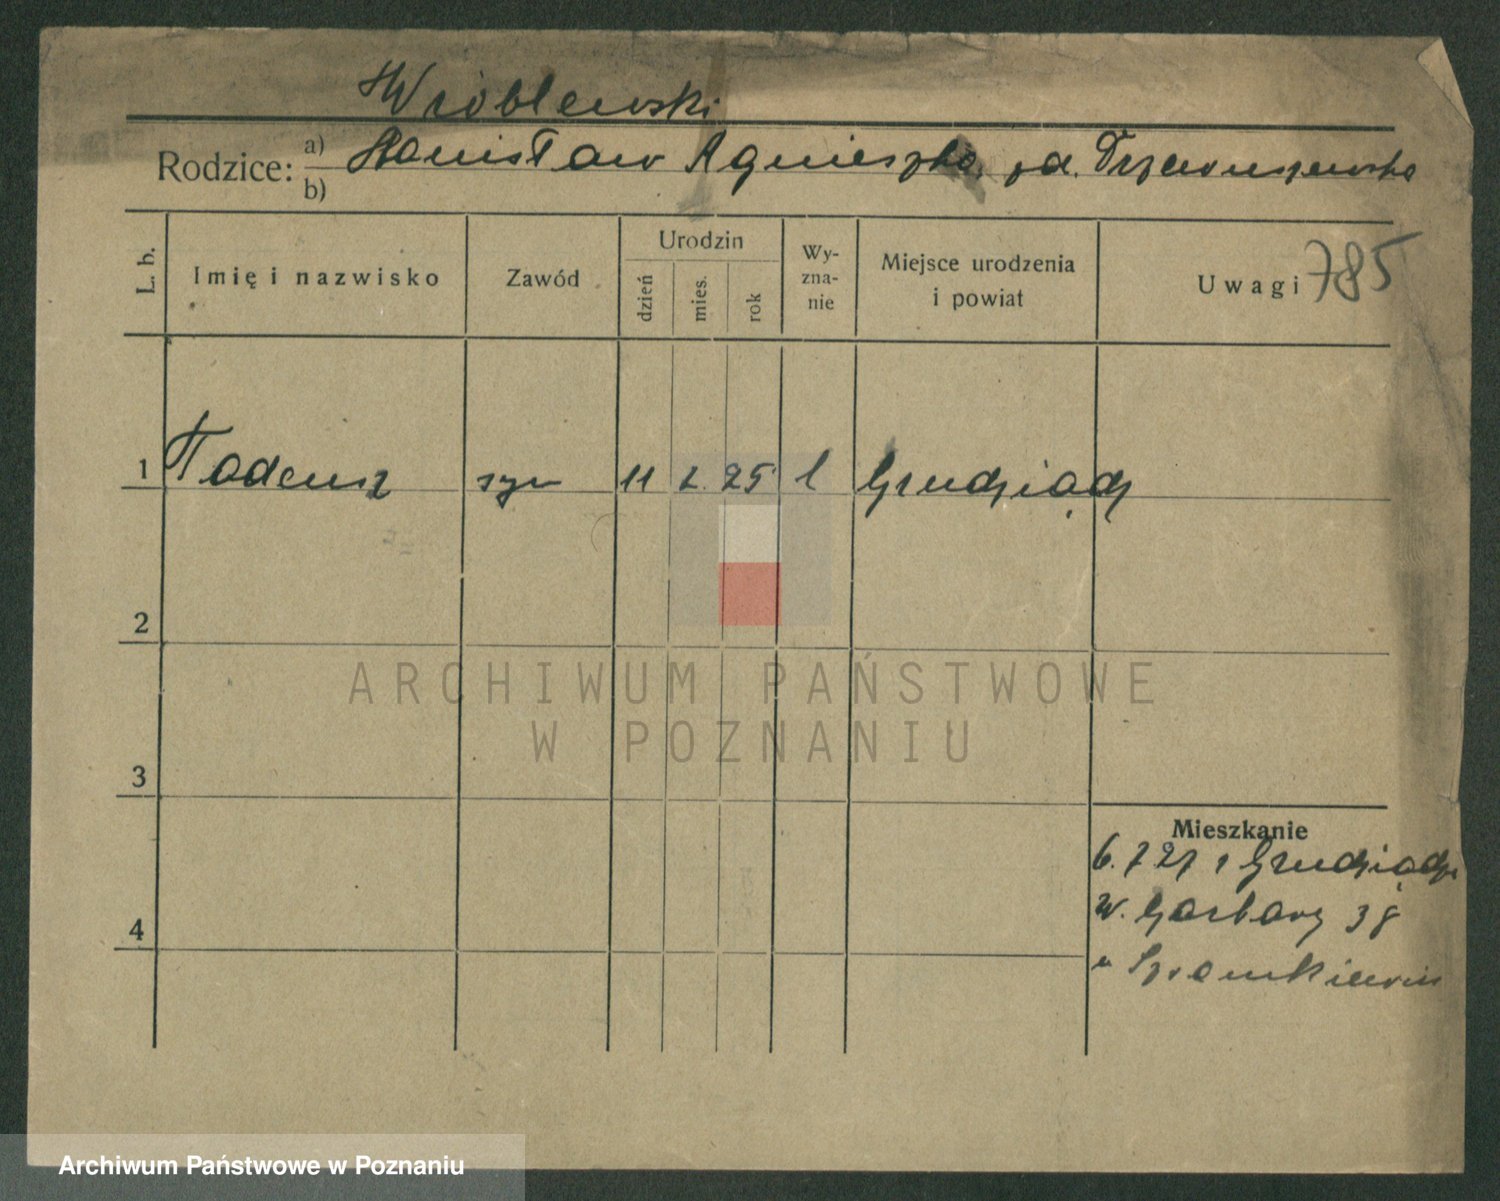 Wróblewski
Rodzice: a) Stanisław Agnieszka, zd.
b)
L. b. Imię i nazwisko Zawód Urodzin dzień mies. rok Wy-zna-nie Miejsce urodzenia i powiat Uwagi 785
1 Tadeusz syn 11 2. 25 k Grudziądz
2
3
4
Mieszkanie
6.7 27 z Grudziądza
W. Garbary 38
u
ARCHIWUM PAŃSTWOWE
W POZNANIU
Archiwum Państwowe w Poznaniu